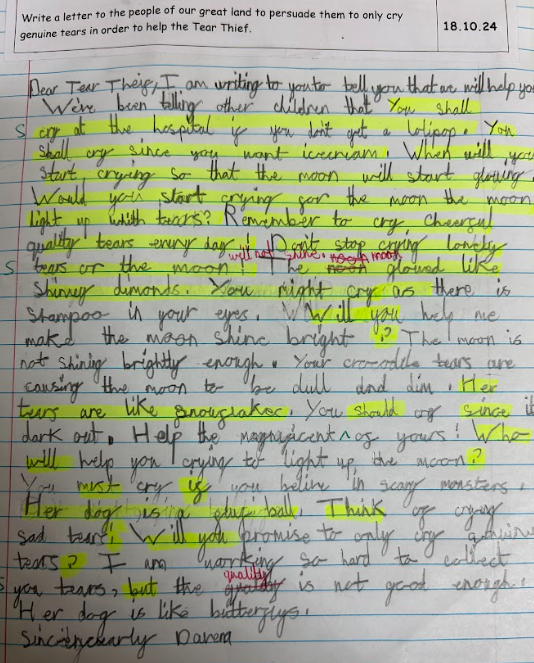 Write a letter to the people of our great land to persuade them to only cry
genuine tears in order to help the Tear Thief.
18.10.24
Dear Tear Theif, I am writing to you to tell you that we will help you
We've been telling other children that You shall
S cry at the hospital if you don't get a lolipop. You
shall cry since you want icecream. When will you
start crying so that the moon will start glowing.
Would you start crying for the moon the moon
light up with tears? Remember to cry cheerful
quality tears every day! Don't stop crying lonely
will not shine. moon
S tears or the moon! The glowed like
Shiney dimonds. You might cry as there is
Shampoo in your eyes. Will you help me
make the moon shine bright? The moon is
not shining brightly enough. Your crocodile tears are
causing the moon to be dull and dim. Her
tears are like snowflakes. You should cry since it
dark out. Help the magnificent ^ of yours! Who
will help you crying to light up the moon?
You must cry if you belive in scary monsters.
Her dog is a ball. Think of crying
sad tears. Will you promise to only cry
tears? I am working so hard to collect
quality
S you tears, but the is not good enough.
Her dog is like butterflys.
Darena